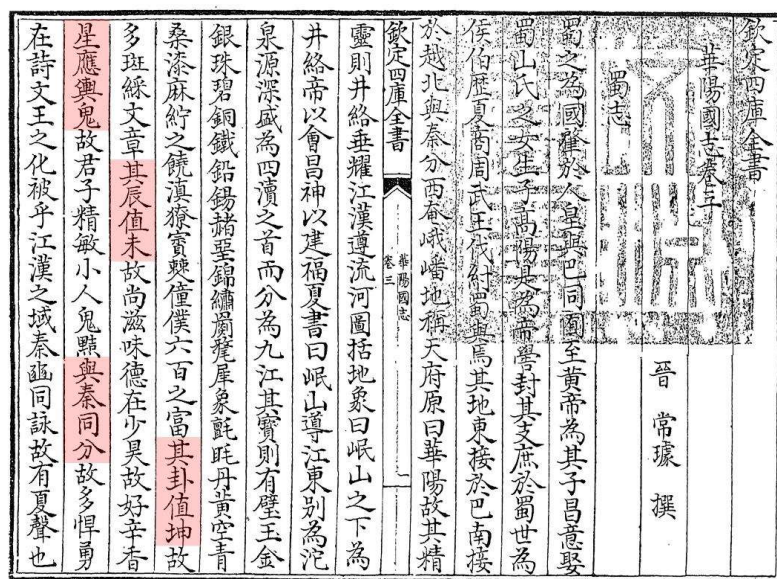 欽定四庫全書
華陽國志卷三
晉 常璩 撰
蜀志
蜀之為國肇於人皇與巴同囿至黄帝為其子昌意娶
蜀山氏之女生子髙陽是為帝嚳封其支庶於蜀世為
侯伯歴夏商周武王伐紂蜀與焉其地東接於巴南接
於越北與秦分西奄峨嶓地稱天府原曰華陽故其精
欽定四庫全書
華陽國志
卷三
一
靈則井絡垂耀江漢遵流河圖括地象曰岷山之下為
井絡帝以會昌神以建福夏書曰岷山導江東别為沱
泉源深盛為四瀆之首而分為九江其寳則有璧玉金
銀珠碧銅鐵鉛錫赭堊錦繡罽氂犀象氈毦丹黄空青
桑漆麻紵之饒滇獠賨僰僮僕六百之富其卦值坤故
多班綵文章其辰值未故尚滋味德在少昊故好辛香
星應輿鬼故君子精敏小人鬼黠與秦同分故多悍勇
在詩文王之化被乎江漢之域秦豳同詠故有夏聲也